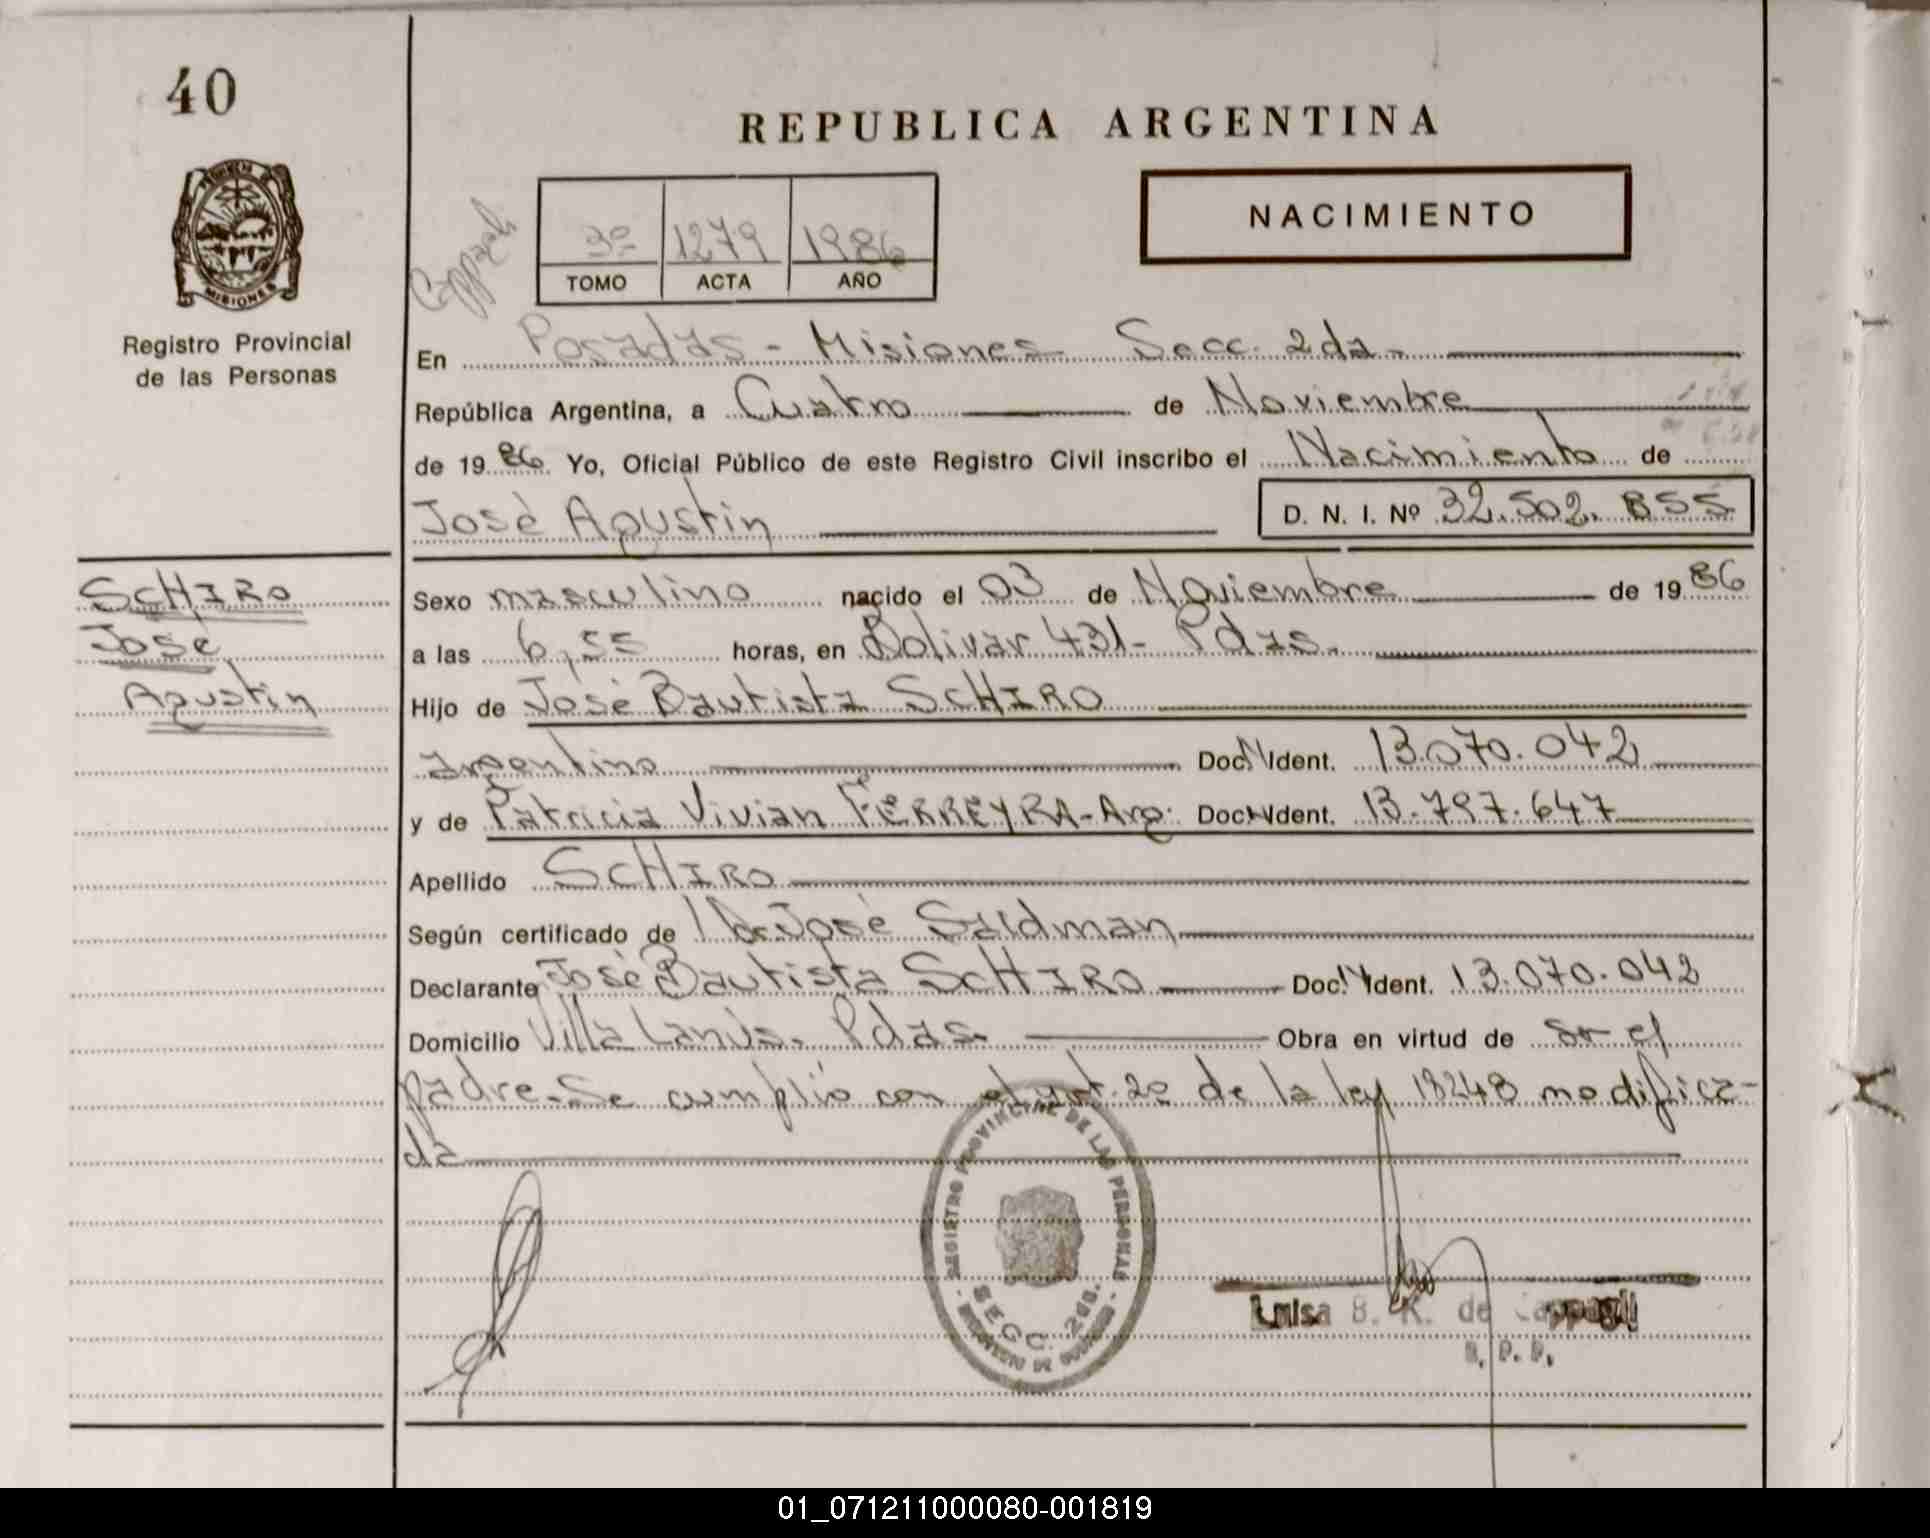 40
REPUBLICA ARGENTINA
NACIMIENTO
3º 1279 1986
TOMO ACTA AÑO
PROVINCIA DE MISIONES
Registro Provincial
de las Personas
En Posadas - Misiones Secc. 2da-
República Argentina, a Cuatro de Noviembre
de 1986 Yo, Oficial Público de este Registro Civil inscribo el Nacimiento de
José Agustín D. N. I. Nº 32.502.855
SCHIRO
Jose
Agustín
Sexo masculino nacido el 03 de Noviembre de 1986
a las 6,55 horas, en Bolivar 431- Pdas.
Hijo de José Bautista SCHIRO
argentino Doc. Ident. 13.070.042
y de Patricia Vivian FERREYRA-Arg. Doc. Ident. 13.797.647
Apellido SCHIRO
Según certificado de Dr. José
Declarante José Bautista SCHIRO Doc. Ident. 13.070.042
Domicilio Villa Lanús. Pdas. Obra en virtud de ser el
padre-Se cumplió con el art. 2º de la ley 18248 modifica-
da
REGISTRO PROVINCIAL DE LAS PERSONAS
SECC. 2da.
MINISTERIO DE GOBIERNO
Luisa B. K. de Cappagli
01_071211000080-001819